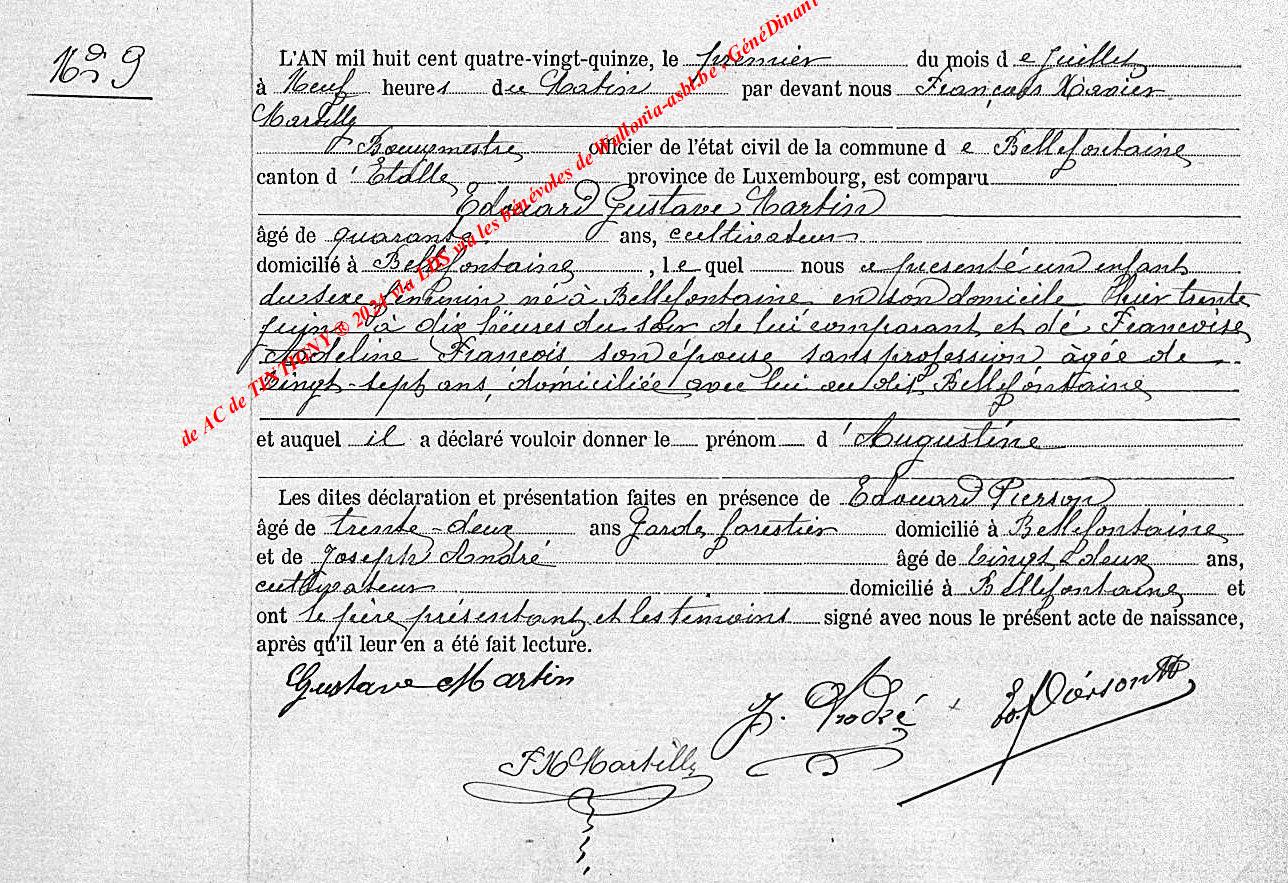 No 9
L'AN mil huit cent quatre-vingt-quinze, le premier du mois d e Juillet
à Neuf heures du Matin par devant nous François Xavier
Martilly
Bourgmestre officier de l'état civil de la commune d e Bellefontaine
canton d ' Etalle province de Luxembourg, est comparu
Edouard Gustave Martin
âgé de quarante ans, cultivateur
domicilié à Bellefontaine, l e quel nous a présenté un enfant
du sexe féminin né à Bellefontaine en son domicile hier trente
juin à dix heures du soir de lui comparant et de Françoise
Adeline François son épouse sans profession âgée de
vingt-sept ans, domiciliée avec lui au dit Bellefontaine
et auquel il a déclaré vouloir donner le prénom d ' Augustine
Les dites déclaration et présentation faites en présence de Edouard Pierson
âgé de trente-deux ans Garde forestier domicilié à Bellefontaine
et de Joseph André âgé de vingt deux ans,
cultivateur domicilié à Bellefontaine et
ont le père présentant et les témoins signé avec nous le présent acte de naissance,
après qu'il leur en a été fait lecture.
Gustave Martin
J. André
Ed. Pierson
F X Martilly
de AC de TINTIGNY ® 2021 via LDS via les bénévoles de Wallonia-asbl.be, GénéDinant